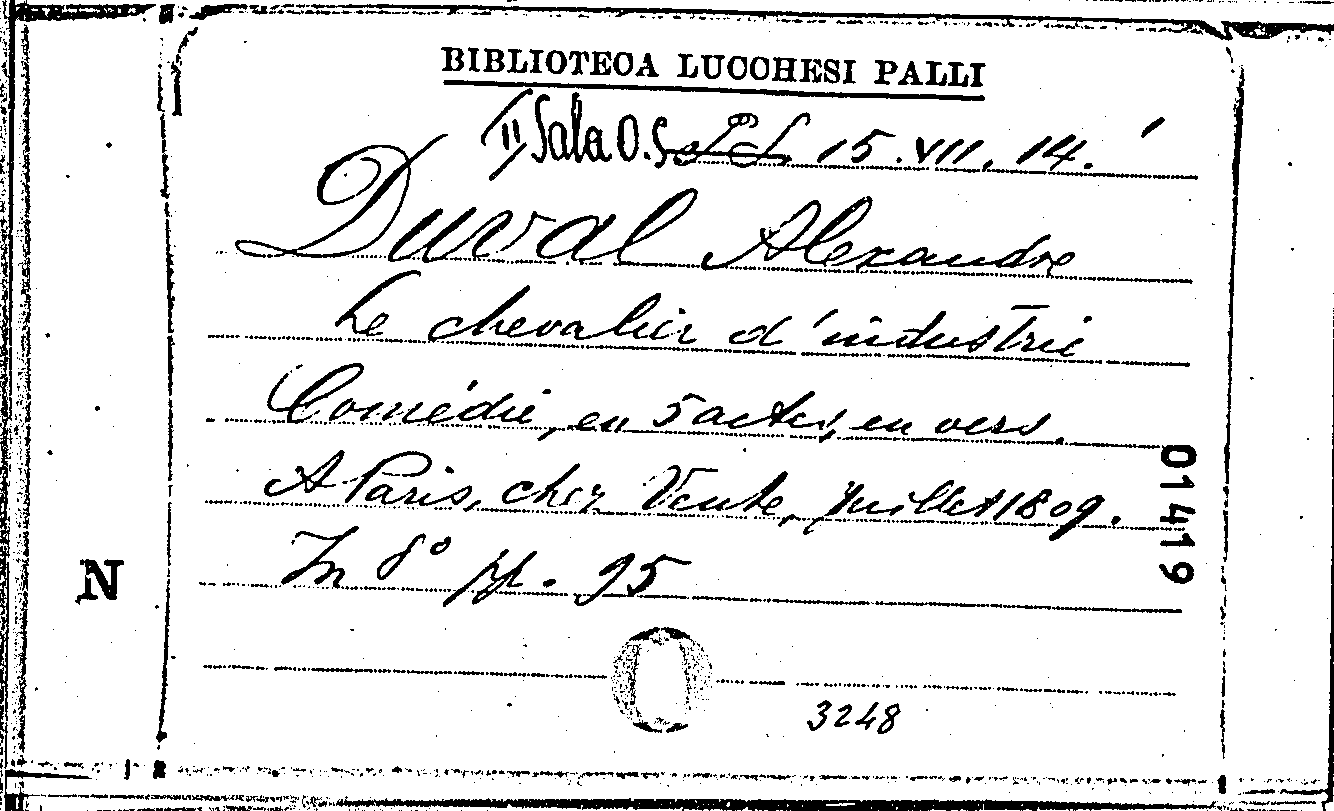 BIBLIOTECA LUCCHESI PALLI
II Sala O.S. 15.VII.14.
Duval Alexandre
Le chevalier d'industrie
Comédie, en 5 actes, en vers.
A Paris, chez Vente, Juillet 1809.
In 8° pp. 95
N
01419
3248